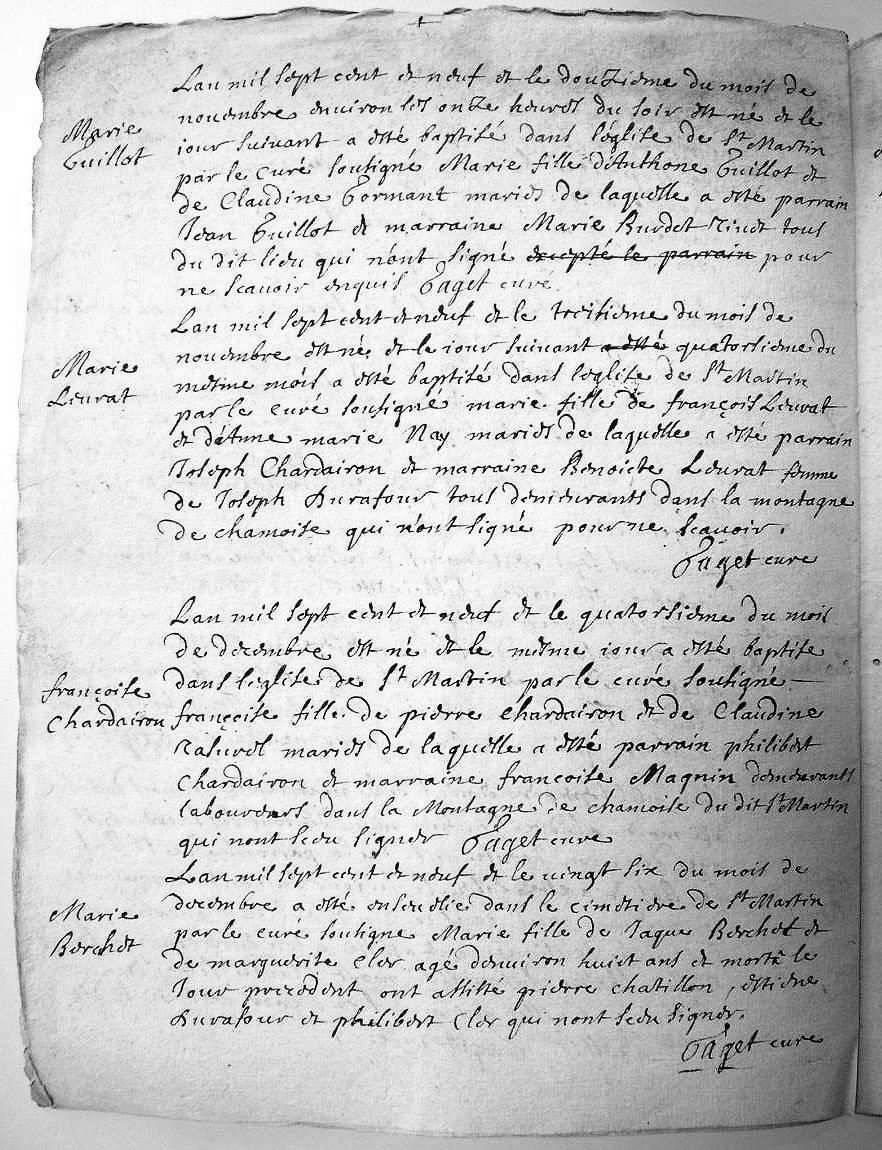 Marie
Guillot
Lan mil sept cent et neuf et le douzieme du mois de
novembre environ les onze heures du soir est né et le
iour suivant a esté baptisé dans léglise de St Martin
par le curé sousigné Marie fille d'Anthone Guillot et
de Claudine Gormant mariés de laquelle a esté parrain
Jean Guillot et marraine Marie Burdet tous
du dit lieu qui n'ont signé excepté le parrain pour
ne scavoir enquis Paget curé
Marie
Levrat
Lan mil sept cent et neuf et le treisieme du mois de
novembre est née et le iour suivant a esté quatorsieme du
mesme mois a esté baptisé dans leglise de St Martin
par le curé sousigné marie fille de françois Levrat
et d'étune marie Nay mariés de laquelle a esté parrain
Joseph Chardairon et marraine Benoicte Levrat femme
de Joseph Durafour tous demeurants dans la montagne
de chamoise qui n'ont signé pour ne scavoir.
Paget cure
françoise
Chardairon
Lan mil sept cent et neuf et le quatorsieme du mois
de decembre est né et le mesme iour a esté baptise
dans leglise de St Martin par le curé sousigné
françoise fille de pierre chardairon et de Claudine
mariés de laquelle a esté parrain philibert
chardairon et marraine francoise Magnin demeurants
laboureurs dans la Montagne de chamoise du dit St Martin
qui nont sceu signer Paget cure
Marie
Berchet
Lan mil sept cent et neuf et le vingt six du mois de
decembre a esté ensevelie dans le cimetiere de St Martin
par le curé sousigne Marie fille de Jaque Berchet et
de marguerite Cler agé denviron huict ans et morte le
Jour precedent ont assisté pierre chatillon, estiene
Durafour et philibert Cler qui nont sceu signer.
Paget cure